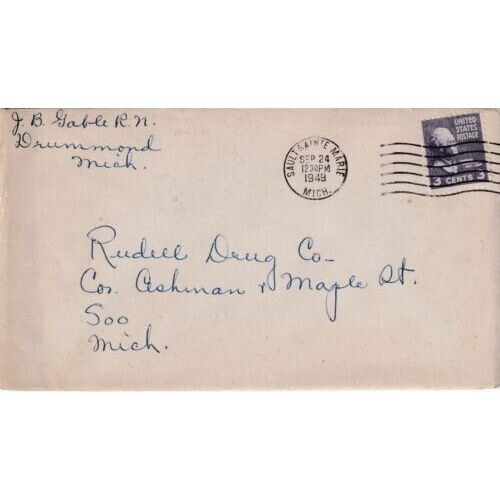 J. B. Gable R.N.
Drummond
Mich.
SAULT SAINTE MARIE
SEP 24
1230PM
1949
MICH.
UNITED
STATES
POSTAGE
3 CENTS 3
Rudell Drug Co-
Cor. Ashman & Maple St.
Soo
Mich.